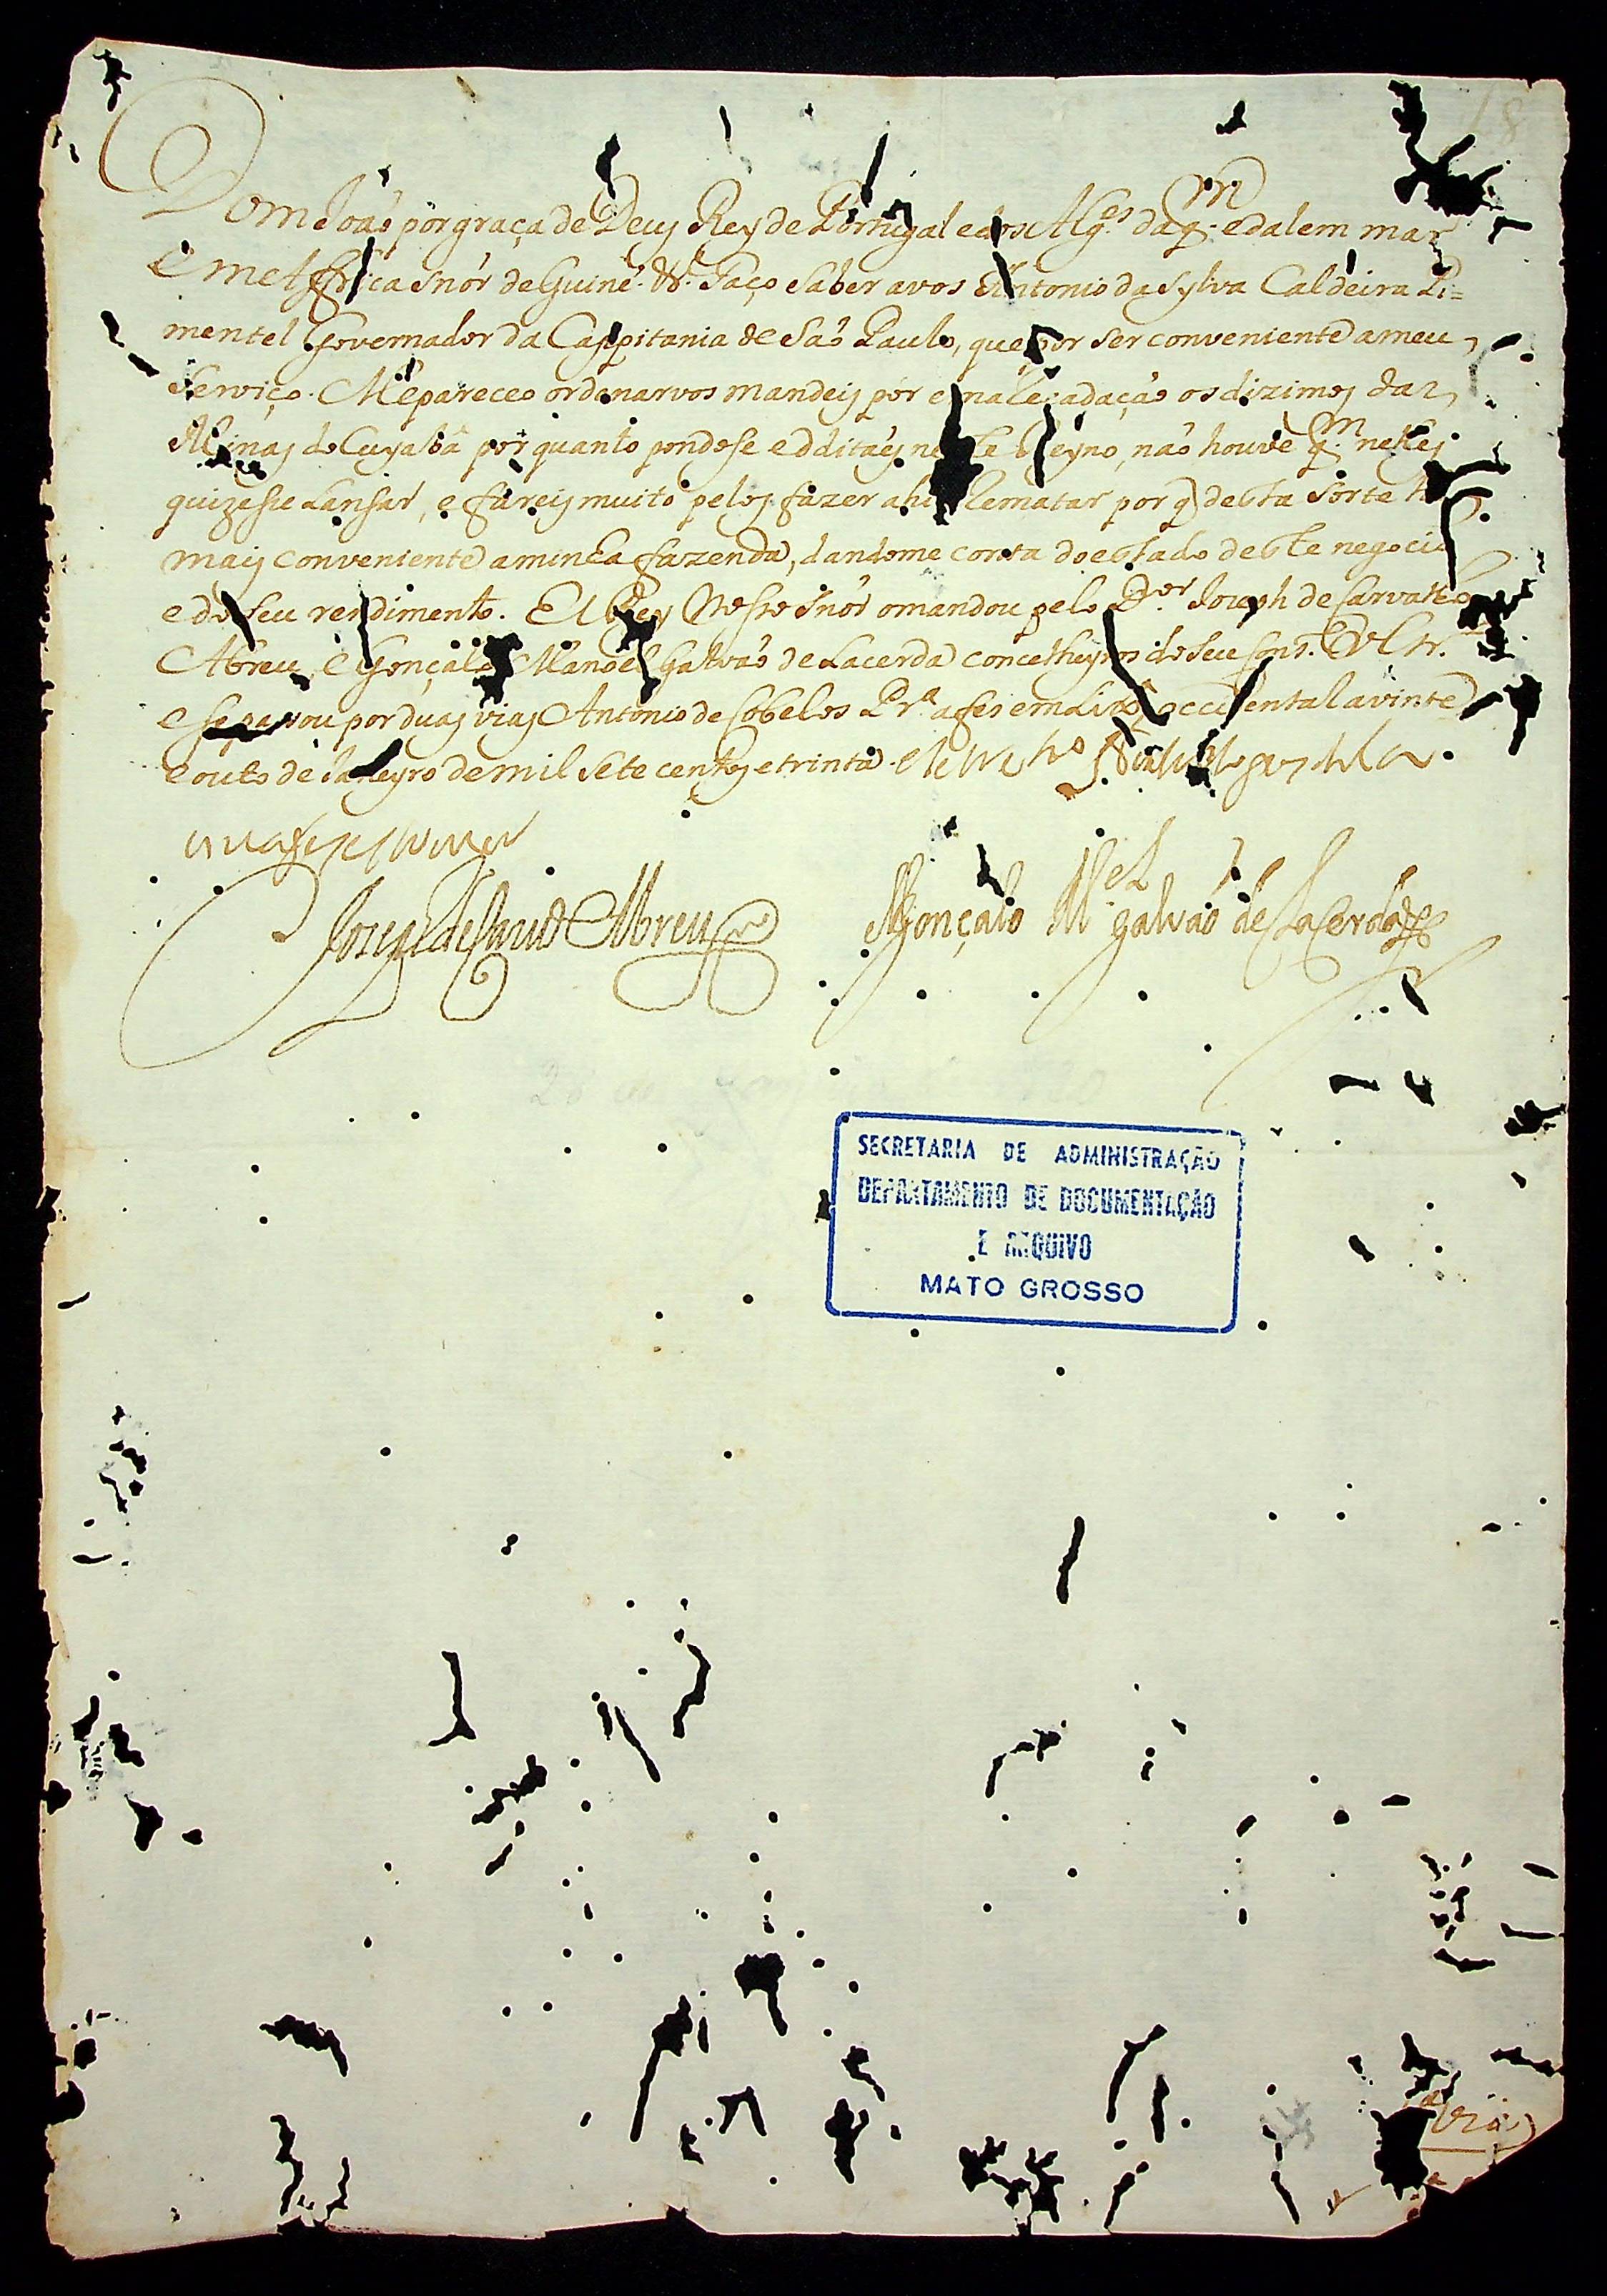 Dom João por graça de Deus Rey de Portugal e dos Alg.es daq.m e dalem mar
em Affrica snor de Guiné &.a Faço saber a vos Antonio da Sylva Caldeira Pi=
mentel Governador da Cappitania de São Paulo, que por ser conveniente a meu
serviço. Me pareceo ordenarvos mandeis por em arecadação os dizimos das
Minas do Cuyabâ por quanto pondose edditais neste Reyno, não houve q.m nelles
quizesse Lansar, e fareis muito pelos fazer ahi Rematar por q desta sorte he
mais conveniente a minha fazenda, dandome conta do estado deste negocio
e do seu rendimento. El Rey Nosso snor o mandou pelo D.or Joseph de Carvalho
Abreu, e Gonçalo Manoel Galvão de Lacerda conselheyros do seu Cons.o Vltr.o
e se passou por duas vias Antonio de Cobelos Pr.a a fes em Lix.a occidental a vinte
e outo de Janeyro de mil sete centos e trinta.
Joseph de Carv.o Abreu
Gonçalo M.el Galvão de Lacerda
SECRETARIA DE ADMINISTRAÇÃO
DEPARTAMENTO DE DOCUMENTAÇÃO
E ARQUIVO
MATO GROSSO
via